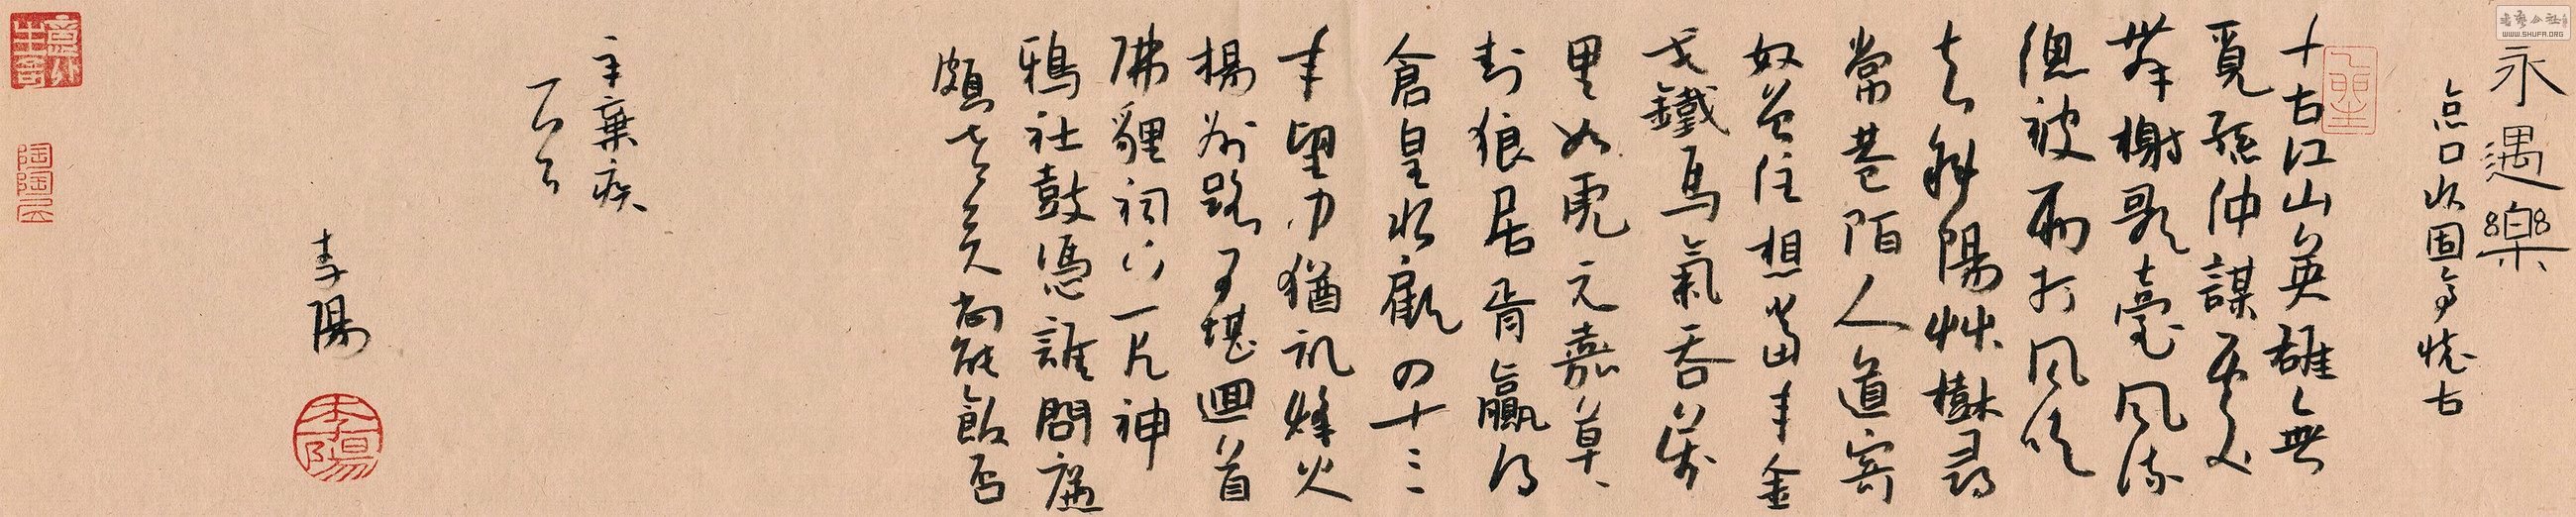 永遇樂
京口北固亭懷古
千古江山英雄無
覓孫仲謀處
舞榭歌臺風流
總被雨打風吹
去斜陽艸樹尋
常巷陌人道寄
奴曾住想當年金
戈鐵馬氣吞萬
里如虎元嘉草々
封狼居胥贏得
倉皇北顧四十三
年望中猶記烽火
揚州路可堪迴首
佛貍祠下一片神
鴉社鼓憑誰問廉
頗老矣尚能飯否
辛棄疾
李陽
李陽
WWW.SHUFA.ORG